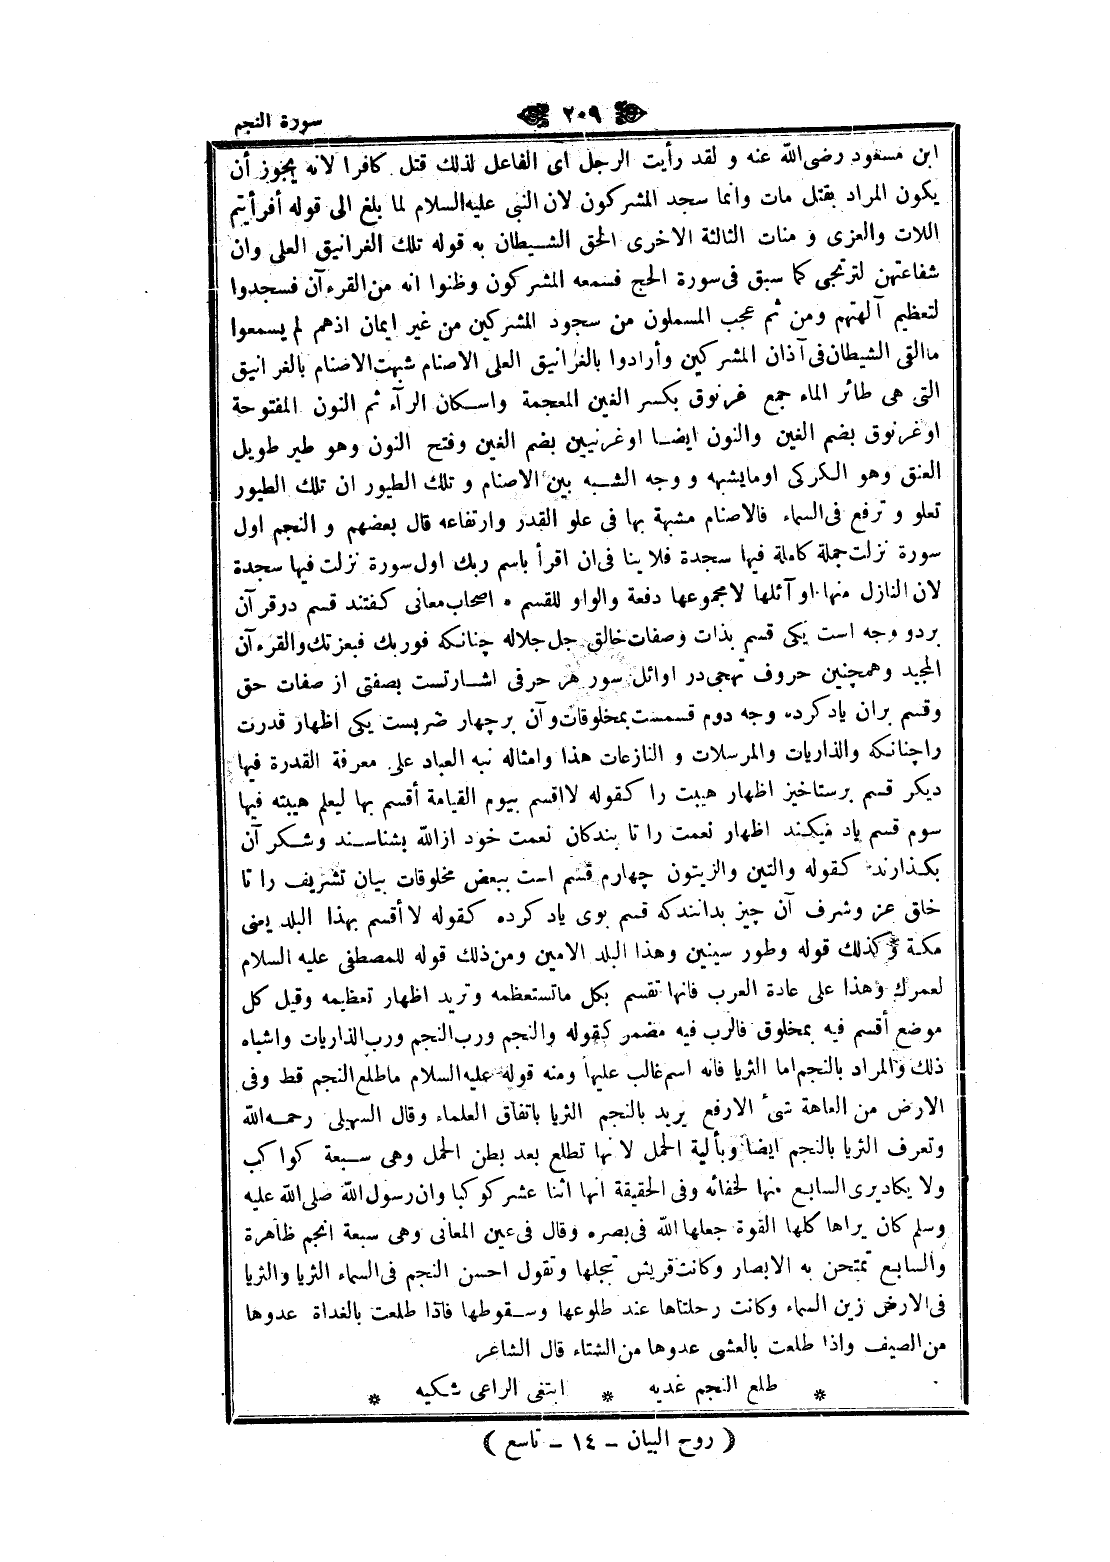 سورة النجم
٢٠٩
ابن مسعود رضى الله عنه و لقد رأيت الرجل اى الفاعل لذلك قتل كافرا لانه يجوز أن
يكون المراد بقتل مات وانما سجد المشركون لان النبى عليه السلام لما بلغ الى قوله أفرأيتم
اللات والعزى و منات الثالثة الاخرى الحق الشيطان به قوله تلك الغرانيق العلى وان
شفاعتهن لترتجى كما سبق فى سورة الحج فسمعه المشركون وظنوا انه من القرءآن فسجدوا
لتعظيم آلهتهم ومن ثم عجب المسملون من سجود المشركين من غير ايمان اذهم لم يسمعوا
ماالقى الشيطان فى آذان المشركين وأرادوا بالغرانيق العلى الاصنام شبهت الاصنام بالغرانيق
التى هى طائر الماء جمع غرنوق بكسر الغين المعجمة واسكان الرآء ثم النون المفتوحة
اوغرنوق بضم الغين والنون ايضا اوغرنيين بضم الغين وفتح النون وهو طير طويل
العنق وهو الكركى اومايشبهه و وجه الشبه بين الاصنام و تلك الطيور ان تلك الطيور
تعلو و ترفع فى السماء فالاصنام مشبهة بها فى علو القدر وارتفاعه قال بعضهم و النجم اول
سورة نزلت جملة كاملة فيها سجدة فلا ينا فى ان اقرأ باسم ربك اول سورة نزلت فيها سجدة
لان النازل منها اوآئلها لامجموعها دفعة والواو للقسم • اصحاب معانى كفتند قسم درقرآن
بردو وجه است يكى قسم بذات وصفات خالق جل جلاله چنانكه فوربك فبعزتك والقرءآن
المجيد وهمچنين حروف تهجى در اوائل سور هر حرفى اشارتست بصفتى از صفات حق
وقسم بران ياد كرده وجه دوم قسمست بمخلوقات وآن برچهار ضربست يكى اظهار قدرت
راچنانكه والذاريات والمرسلات و النازعات هذا وامثاله نبه العباد على معرفة القدرة فيها
ديكر قسم برستاخيز اظهار هيبت را كقوله لااقسم بيوم القيامة أقسم بها ليعلم هيبته فيها
سوم قسم ياد ميكند اظهار نعمت را تا بندكان نعمت خود ازالله بشناسند وشكر آن
بكذارند كقوله والتين والزيتون چهارم قسم است ببعض مخلوقات بيان تشريف را تا
خلق عز وشرف آن چيز بدانندكه قسم بوى ياد كرده كقوله لا أقسم بهذا البلد يعنى
مكة وكذلك قوله وطور سينين وهذا البلد الامين ومن ذلك قوله للمصطفى عليه السلام
لعمرك وهذا على عادة العرب فانها تقسم بكل ماتستعظمه وتريد اظهار تعظيمه وقيل كل
موضع أقسم فيه بمخلوق فالرب فيه مضمر كقوله والنجم ورب النجم ورب الذاريات واشباه
ذلك والمراد بالنجم اما الثريا فانه اسم غالب عليها ومنه قوله عليه السلام ماطلع النجم قط وفى
الارض من العاهة شىء الارفع يريد بالنجم الثريا باتفاق العلماء وقال السهيلى رحمه الله
وتعرف الثريا بالنجم ايضا وبألية الحمل لانها تطلع بعد بطن الحمل وهى سبعة كواكب
ولا يكاديرى السابع منها لخفائه وفى الحقيقة انها اثنا عشر كوكبا وان رسول الله صلى الله عليه
وسلم كان يراها كلها القوة جعلها الله فى بصره وقال فى عين المعانى وهى سبعة انجم ظاهرة
والسابع تمتحن به الابصار وكانت قريش تبجلها وتقول احسن النجم فى السماء الثريا والثريا
فى الارض زين السماء وكانت رحلتاها عند طلوعها وسقوطها فاذا طلعت بالغداة عدوها
من الصيف واذا طلعت بالعشى عدوها من الشتاء قال الشاعر
* طلع النجم غديه * ابتغى الراعى شكيه *
( روح البيان - ١٤ - تاسع )